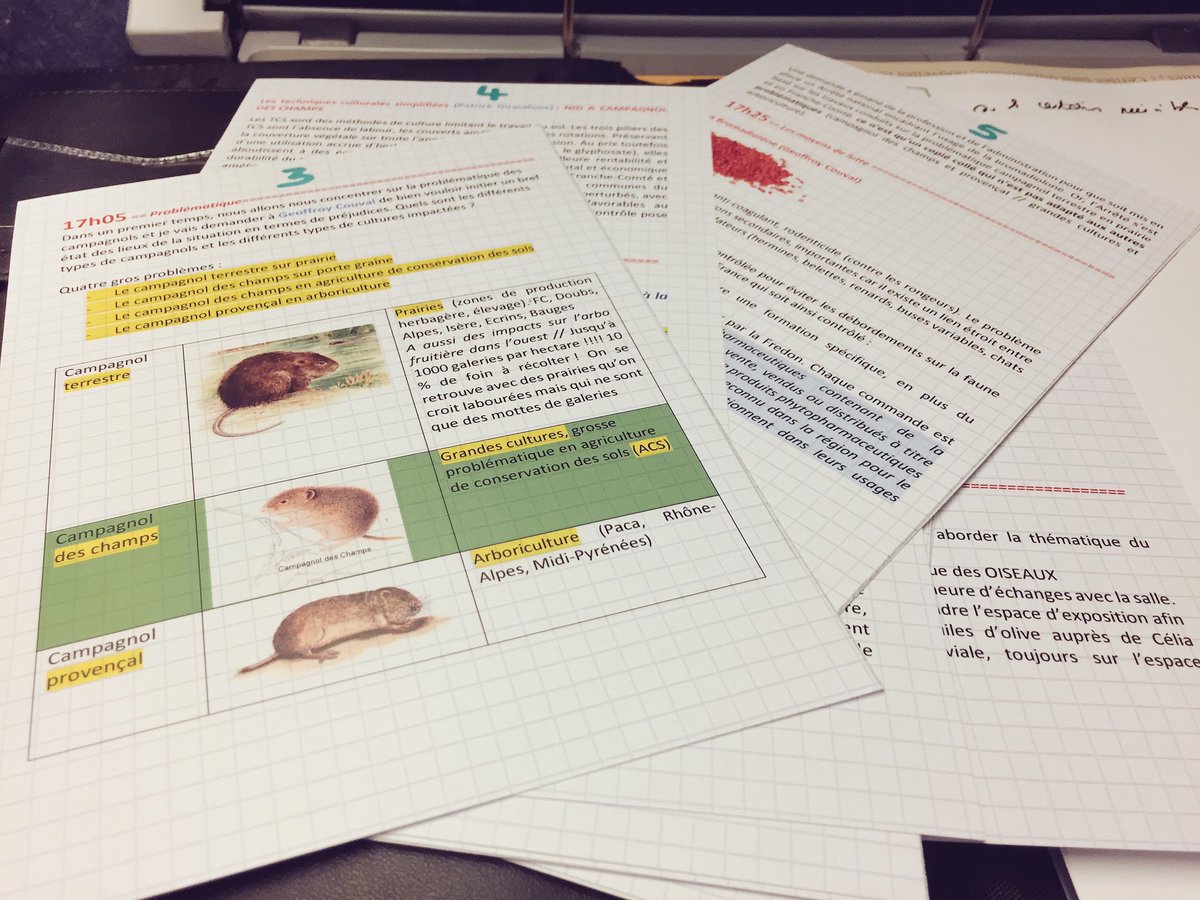 3
17h05 -- Problématique
Dans un premier temps, nous allons nous concentrer sur la problématique des
campagnols et je vais demander à Geoffroy Couval de bien vouloir initier un bref
état des lieux de la situation en termes de préjudices. Quels sont les différents
types de campagnols et les différents types de cultures impactées ?
Quatre gros problèmes :
- Le campagnol terrestre sur prairie
- Le campagnol des champs sur porte graine
- Le campagnol des champs en agriculture de conservation des sols
- Le campagnol provençal en arboriculture
Campagnol
terrestre
Prairies (zones de production
herbagère, élevage). FC, Doubs,
Alpes, Isère, Ecrins, Bauges
A aussi des impacts sur l'arbo
fruitière dans l'ouest // Jusqu'à
1000 galeries par hectare !!!! 10
% de foin à récolter ! On se
retrouve avec des prairies qu'on
croit labourées mais qui ne sont
que des mottes de galeries
Campagnol
des champs
Campagnol des Champs
Grandes cultures, grosse
problématique en agriculture
de conservation des sols (ACS)
Campagnol
provençal
Arboriculture (Paca, Rhône-
Alpes, Midi-Pyrénées)
4
Les techniques culturales simplifiées (Patrick Giraudoux) : NID A CAMPAGNOL
DES CHAMPS
Les TCS sont des méthodes de culture limitant le travail du sol. Les trois piliers des
TCS sont l'absence de labour, les couverts rotations. Préservant
la couverture végétale sur toute l' Au prix toutefois
d'une utilisation accrue d' le glyphosate), elles
aboutissent à des rentabilité et
durabilité du et économique
Franche-Comté et
communes du
perturbés, avec
favorables au
contrôle pose
à la
5
Une demande a émané de la profession et de l'administration pour que soit mis en
place un Arrêté national encadrant l'usage de la bromadiolone. Or, l'Arrêté s'est
basé sur les travaux conduits sur la problématique campagnol terrestre en prairie
et en Franche-Comté, ce n'est qu'un copié collé qui n'est pas adapté aux autres
problématiques (campagnol des champs et provençal // grandes cultures et
arboriculture).
17h25 -- Les moyens de lutte
Bromadiolone (Geoffroy Couval)
anti coagulant, rodenticide (contre les rongeurs). Le problème
secondaires, importantes car il existe un lien étroit entre
(hermines, belettes, renards, buses variables, chats
contrôlée pour éviter les débordements sur la faune
France qui soit ainsi contrôlé :
une formation spécifique, en plus du
par la Fredon. Chaque commande est
contenant de la
vente, vendus ou distribués à titre
produits phytopharmaceutiques
reconnu dans la région pour le
dans leurs usages
aborder la thématique du
que des OISEAUX
heure d'échanges avec la salle.
l'espace d'exposition afin
d'olive auprès de Célia
toujours sur l'espace